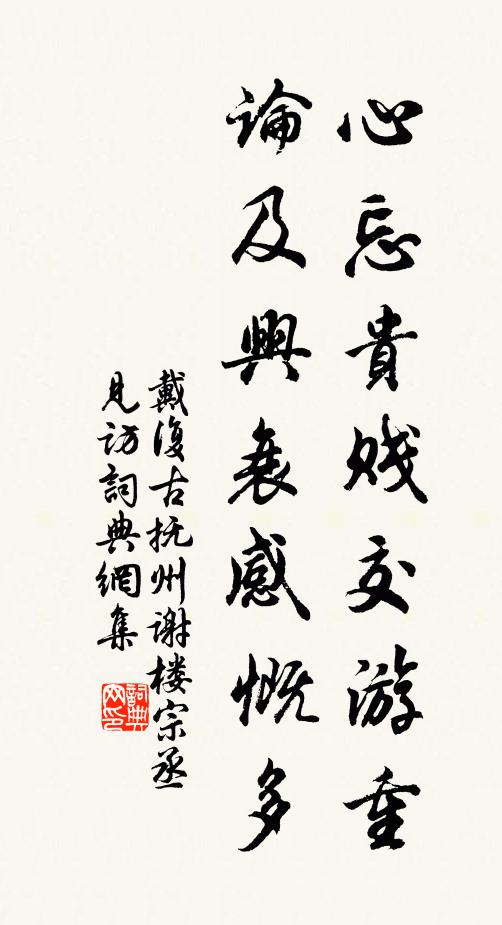 心忘貴賤交游重
論及興衰感慨多
戴復古抚州谢楼宗丞
見访詞典網集
詞典
网印